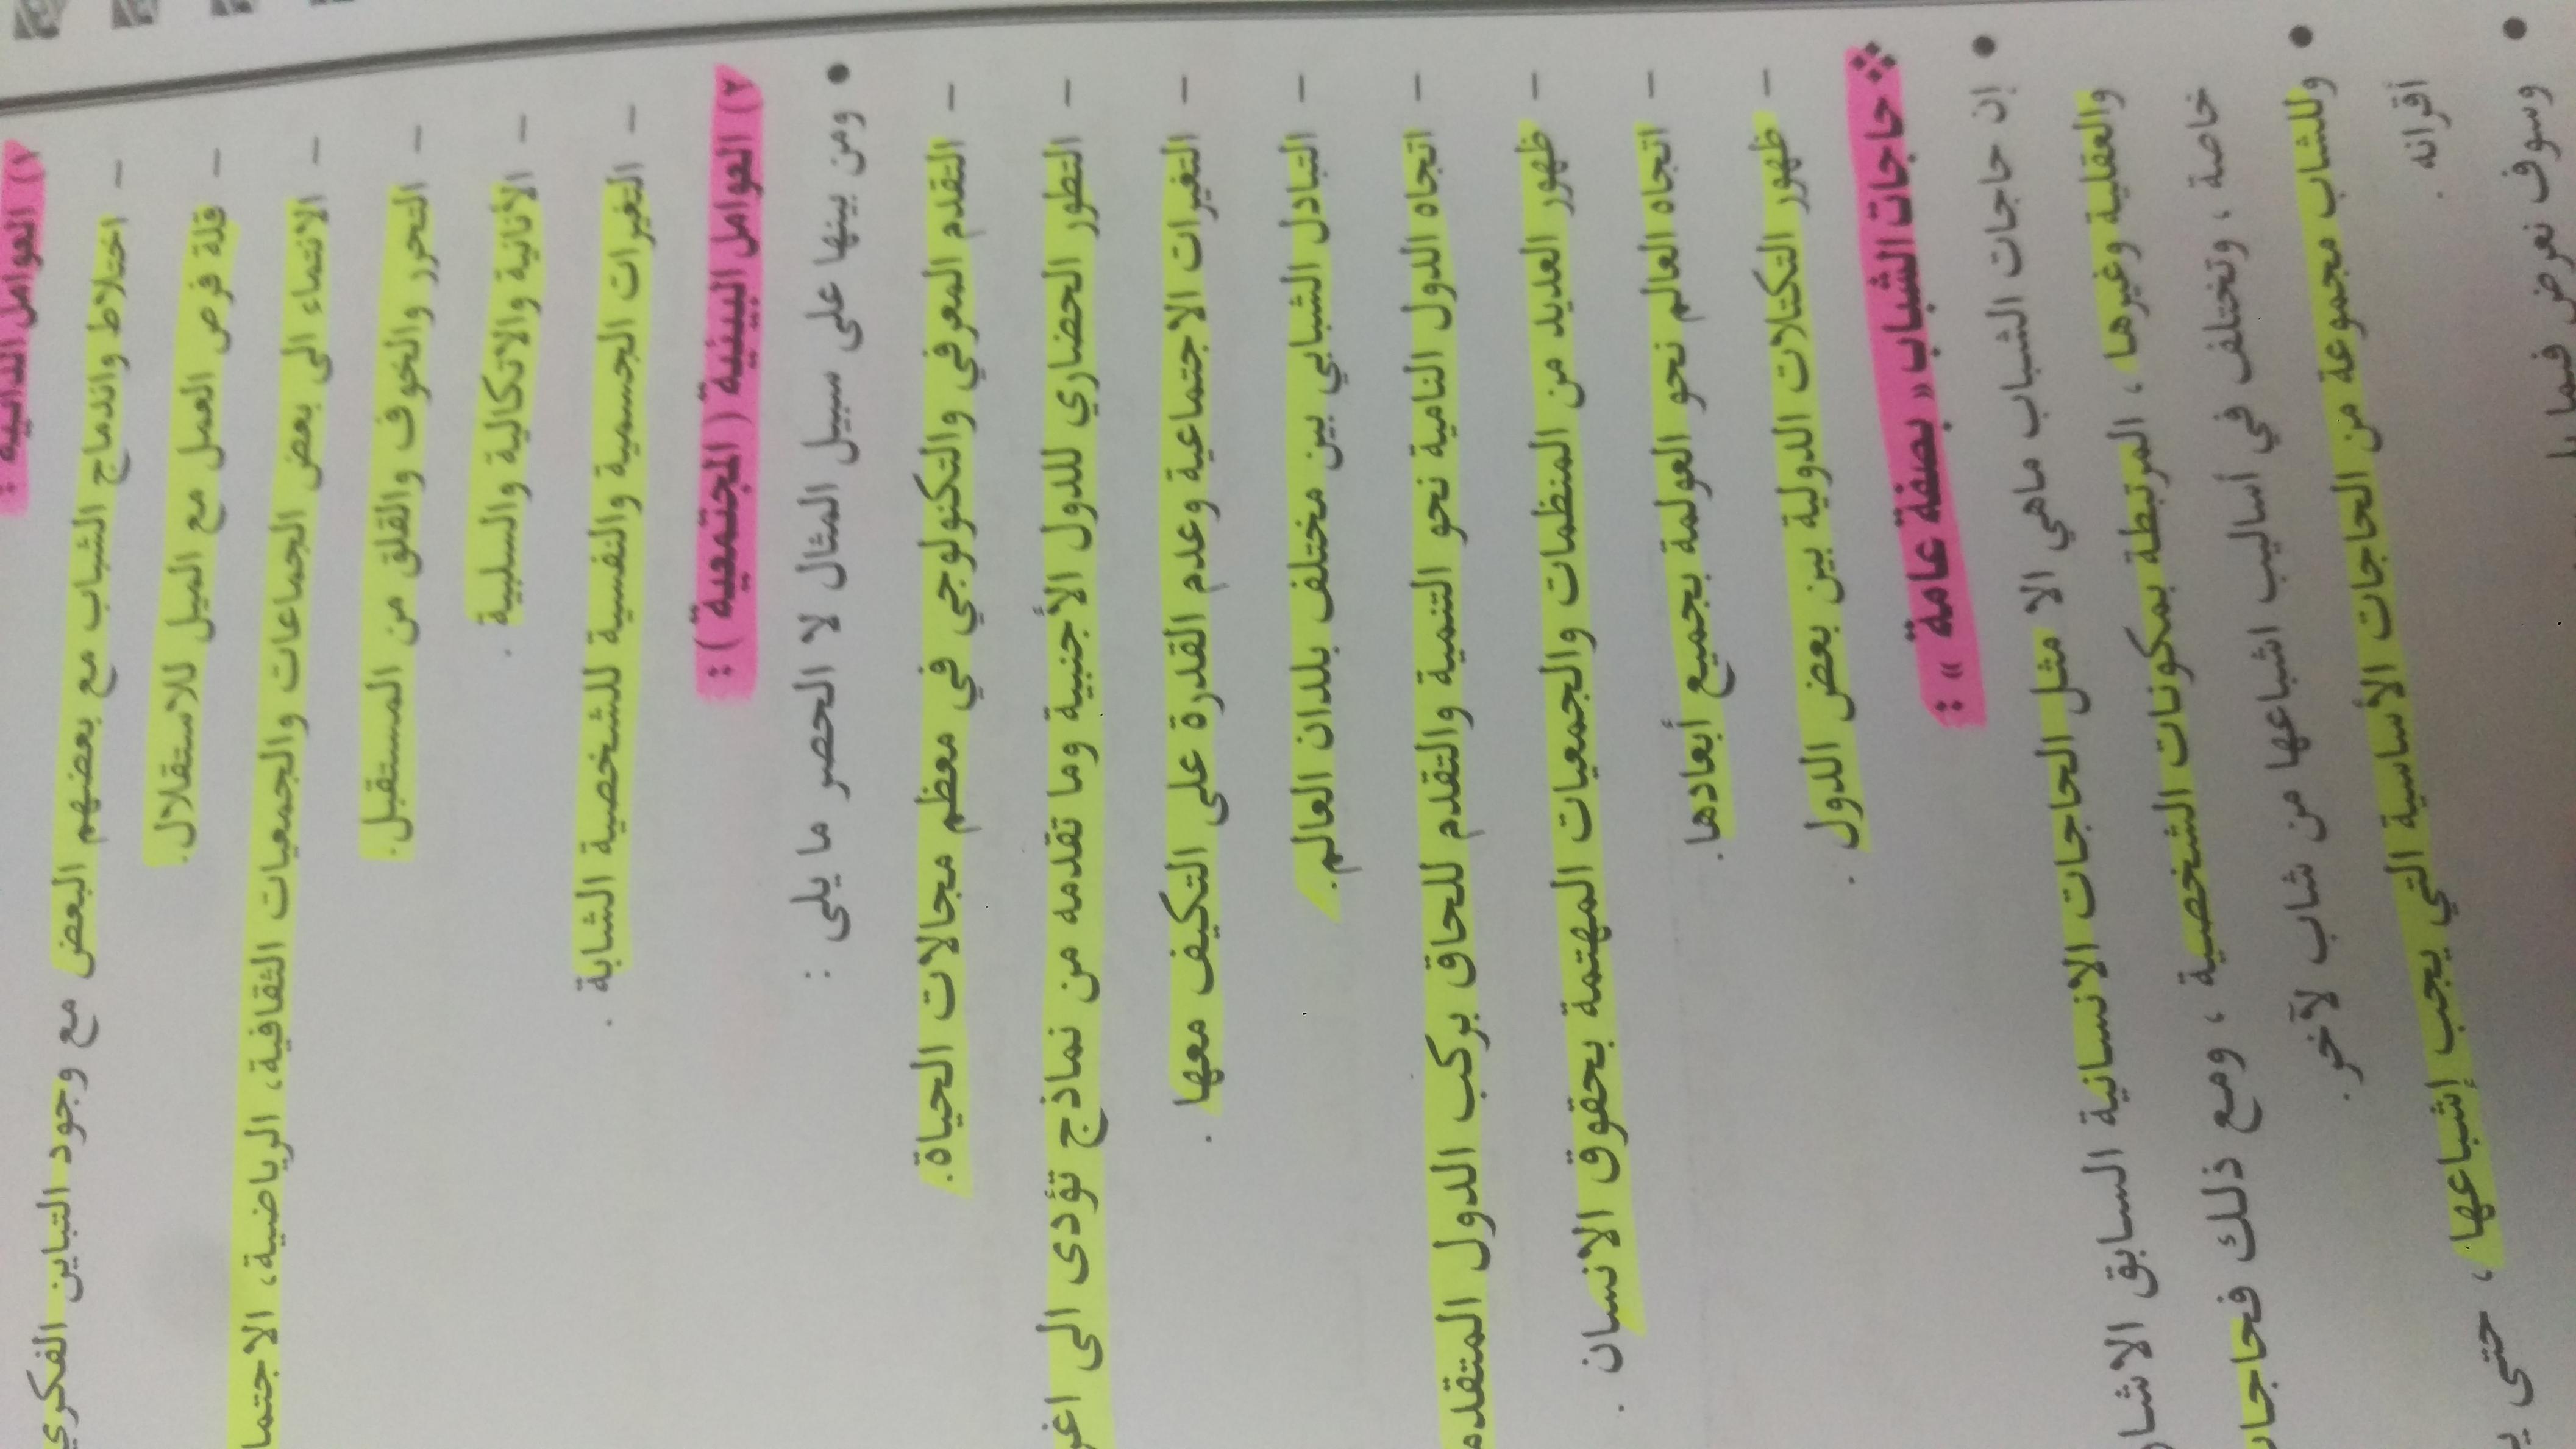 ١) العوامل الذاتية :
– اختلاط واندماج الشباب مع بعضهم البعض مع وجود التباين الفكري
– قلة فرص العمل مع الميل للاستقلال.
– الانتماء الى بعض الجماعات والجمعيات الثقافية، الرياضية، الاجتما
– التحرر والخوف والقلق من المستقبل.
– الأنانية والاتكالية والسلبية .
– التغيرات الجسمية والنفسية للشخصية الشابة .
٢) العوامل البيئية ( المجتمعية ) :
• ومن بينها على سبيل المثال لا الحصر ما يلى :
– التقدم المعرفي والتكنولوجي في معظم مجالات الحياة.
– التطور الحضاري للدول الأجنبية وما تقدمه من نماذج تؤدى الى اغر
– التغيرات الاجتماعية وعدم القدرة على التكيف معها .
– التبادل الشبابي بين مختلف بلدان العالم.
– اتجاه الدول النامية نحو التنمية والتقدم للحاق بركب الدول المتقدم
– ظهور العديد من المنظمات والجمعيات المهتمة بحقوق الانسان .
– اتجاه العالم نحو العولمة بجميع أبعادها.
– ظهور التكتلات الدولية بين بعض الدول .
❖ حاجات الشباب « بصفة عامة » :
• إن حاجات الشباب ماهي الا مثل الحاجات الانسانية السابق الاشار
والعقلية وغيرها، المرتبطة بمكونات الشخصية ، ومع ذلك فحاجات
خاصة ، وتختلف في أساليب اشباعها من شاب لآخر.
• وللشباب مجموعة من الحاجات الأساسية التي يجب إشباعها، حتى ي
أقرانه .
• وسوف نعرض فيما يل